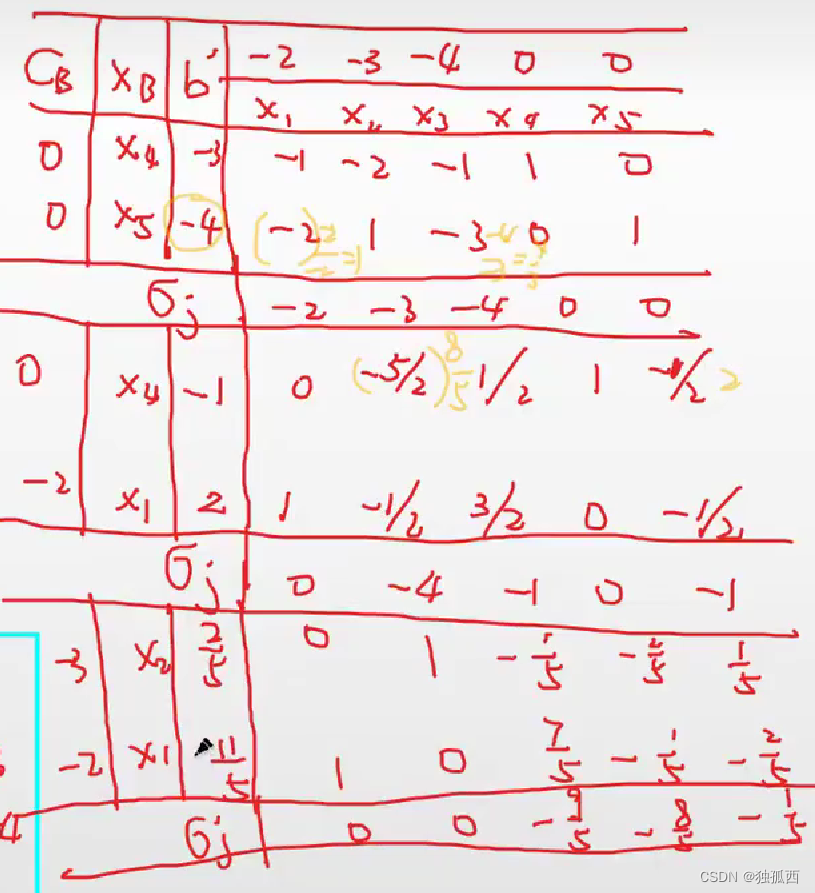 C_B X_B b' -2 -3 -4 0 0
x₁ x₂ x₃ x₄ x₅
0 x₄ -3 -1 -2 -1 1 0
0 x₅ -4 (-2) 1 -3 0 1
σj -2 -3 -4 0 0
0 x₄ -1 0 (-5/2) 8/5 1/2 1 -1/2 2
-2 x₁ 2 1 -1/2 3/2 0 -1/2
σj 0 -4 -1 0 -1
-3 x₂ 2/5 0 1 -1/5 -2/5 1/5
-2 x₁ 11/5 1 0 7/5 -1/5 -2/5
4 σj 0 0 -9/5 -8/5 -1/5
CSDN @独孤西